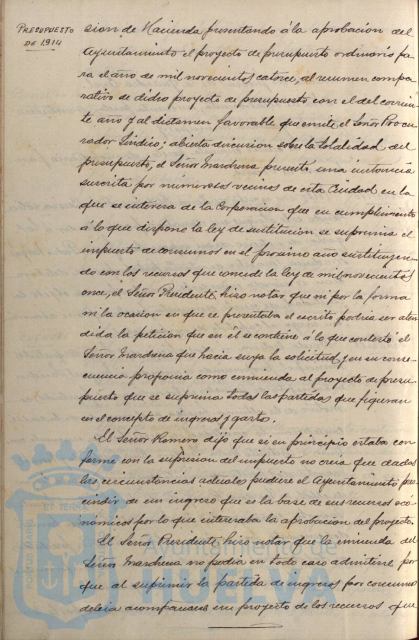 PRESUPUESTO
DE 1914
sion de Hacienda presentando á la aprobacion del
Ayuntamiento el proyecto de presupuesto ordinario pa
ra el año de mil novecientos catorce, al resumen compa
rativo de dicho proyecto de presupuesto con el del corrien
te año y al dictamen favorable que emite el Señor Procu
rador Síndico; abierta discusion sobre la totalidad del
presupuesto, el Señor Marchena presentó una instancia
suscrita por numerosos vecinos de esta Ciudad en la
que se interesa de la Corporacion que en cumplimiento
á lo que dispone la ley de sustitucion se suprima el
impuesto de consumos en el proximo año sustituyen
do con los recursos que concede la ley de mil novecientos
once, el Señor Presidente hizo notar que ni por la forma
ni la ocasion en que se presentaba el escrito podria ser aten
dida la peticion que en él se contiene á lo que contestó el
Señor Marchena que hacia suya la solicitud y en su conse
cuencia proponia como enmienda al proyecto de presu
puesto que se suprima todas las partidas que figuran
en el concepto de ingresos y gastos.
El Señor Romero dijo que si en principio estaba con
forme con la supresion del impuesto no creia que dadas
las circunstancias actuales pudiere el Ayuntamiento pres
cindir de un ingreso que es la base de sus recursos eco
nómicos por lo que interesaba la aprobacion del proyecto.
El Señor Presidente hizo notar que la enmienda del
Señor Marchena no podia en todo caso admitirse por
que al suprimir la partida de ingresos por consumos
debia acompañarse un proyecto de los recursos que
Ayuntamiento de
HUELVA